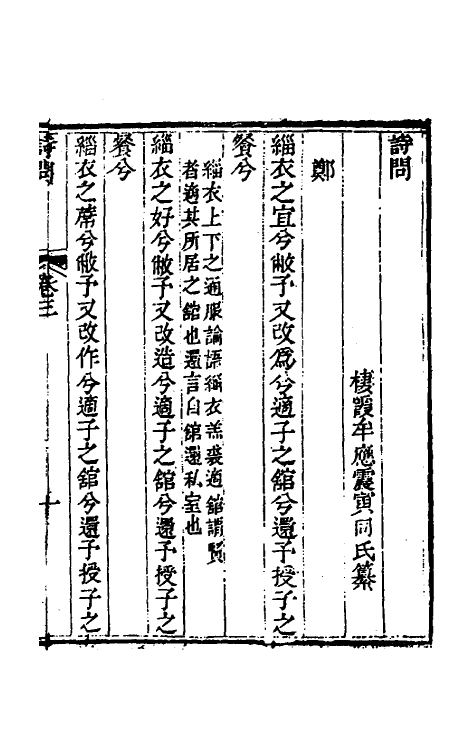 詩問
棲霞牟應震寅同氏纂
鄭
緇衣之宜兮敝予又改爲兮適子之舘兮還予授子之
餐兮
緇衣上下之通服論語緇衣羔裘適舘謂賢
者適其所居之舘也還言自舘還私室也
緇衣之好兮敝予又改造兮適子之舘兮還予授子之
餐兮
緇衣之蓆兮敝予又改作兮適子之舘兮還予授子之
詩問 卷三